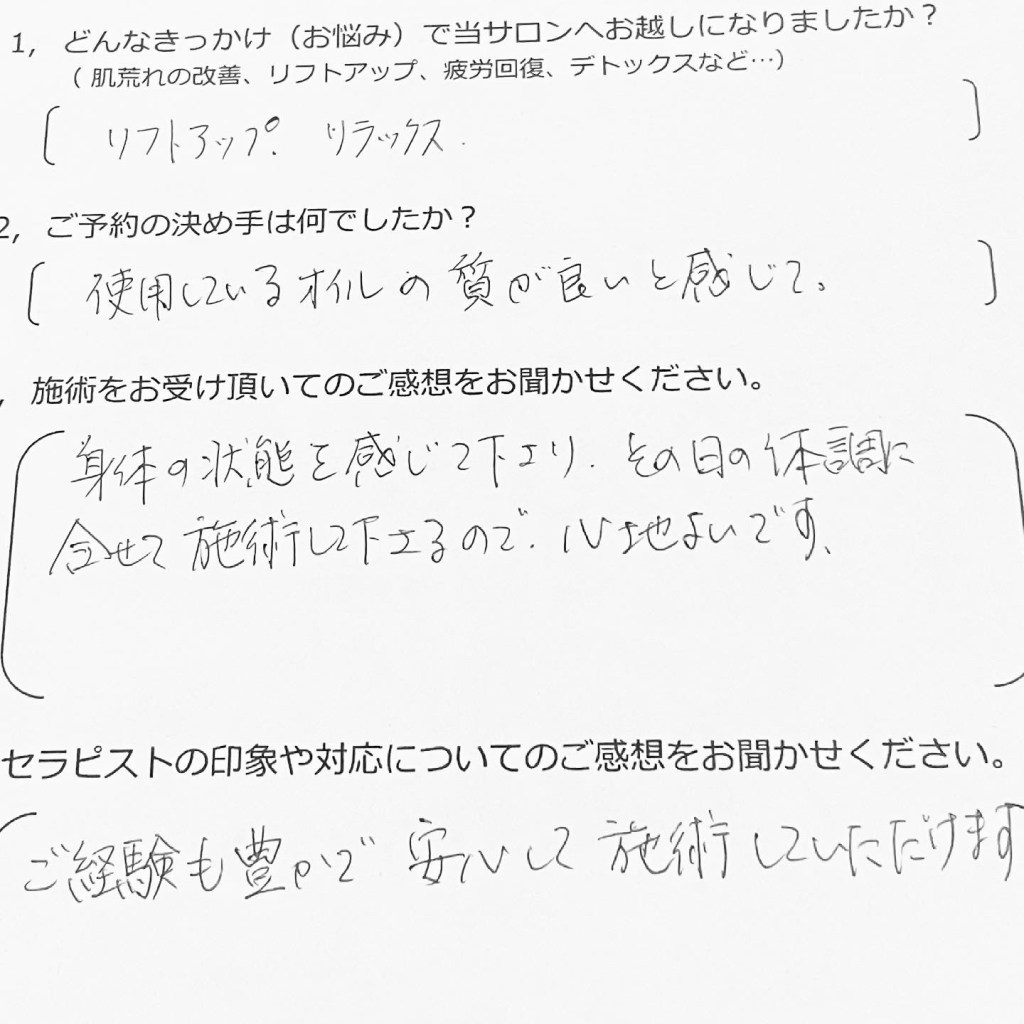 1, どんなきっかけ（お悩み）で当サロンへお越しになりましたか？
（ 肌荒れの改善、リフトアップ、疲労回復、デトックスなど…）
リフトアップ. リラックス.
2, ご予約の決め手は何でしたか？
使用しているオイルの質が良いと感じて。
, 施術をお受け頂いてのご感想をお聞かせください。
身体の状態を感じて下さり、その日の体調に
合せて施術して下さるので、心地よいです、
セラピストの印象や対応についてのご感想をお聞かせください。
ご経験も豊かで安心して施術していただけます